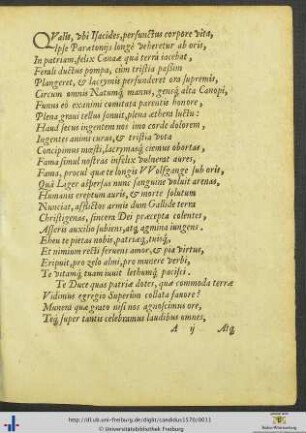 QValis, vbi Isacides, perfunctus corpore vita,
Ipse Parætonijs longè veheretur ab oris,
In patriam, felix Canaæ quà terra iacebat,
Feruli ductus pompa, cùm tristia passim
Plangeret, & lacrymis perfunderet ora supremis,
Circum omnis Natumq́; manus, gensq́; alta Canopi,
Funus eò exanimi comitata parentis honore,
Plena graui tellus sonuit, plena æthera luctu:
Haud secus ingentem nos imo corde dolorem,
Ingentes animi curas, & tristia vota
Concipimus mœsti, lacrymasq́; ciemus obortas,
Fama simul nostras infelix vulnerat aures,
Fama, procul quæ te longis VVolfgange sub oris,
Quà Liger aspersas nunc sanguine voluit arenas,
Humanis ereptum auris, & morte solutum
Nunciat, afflictos armis dum Gallide terra
Christigenas, sincera Dei præcepta colentes,
Asseris auxilio subiens, atq́; agmina iungens.
Eheu te pietas nobis, patriæq́;, tuisq́;,
Et nimium recti feruens amor, & pia virtus,
Eripuit, pro zelo almi, pro munere verbi,
Te vitamq́; tuam iuuit lethumq́; pacisci.
Te Duce quas patriæ dotes, quæ commoda terræ
Vidimus egregio Superûm collata fauore?
Munera quæ grato nisi nos agnoscimus ore,
Teq́; super tantis celebramus laudibus omnes,
A ij Atq́;
http://dl.ub.uni-freiburg.de/diglit/candidus1570/0011
© Universitätsbibliothek Freiburg
Baden-Württemberg